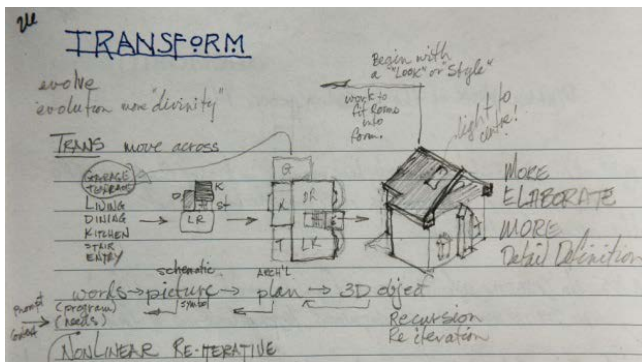 TRANSFORM
evolve
evolution more "divinity"
Begin with
a "Look" or "Style"
work to
fit Rooms
into
Form.
light to
centre!
TRANS move across
GARAGE
TERRACE
LIVING
DINING
KITCHEN
STAIR
ENTRY
D
K
St
LR
G
K
DR
T
LR
MORE
ELABORATE
MORE
Detail Definition
schematic
ARCH'L
words → picture → plan → 3D object
Prompt
(program)
(needs)
symbol
Context
Recursion
Re iteration
NONLINEAR RE-ITERATIVE